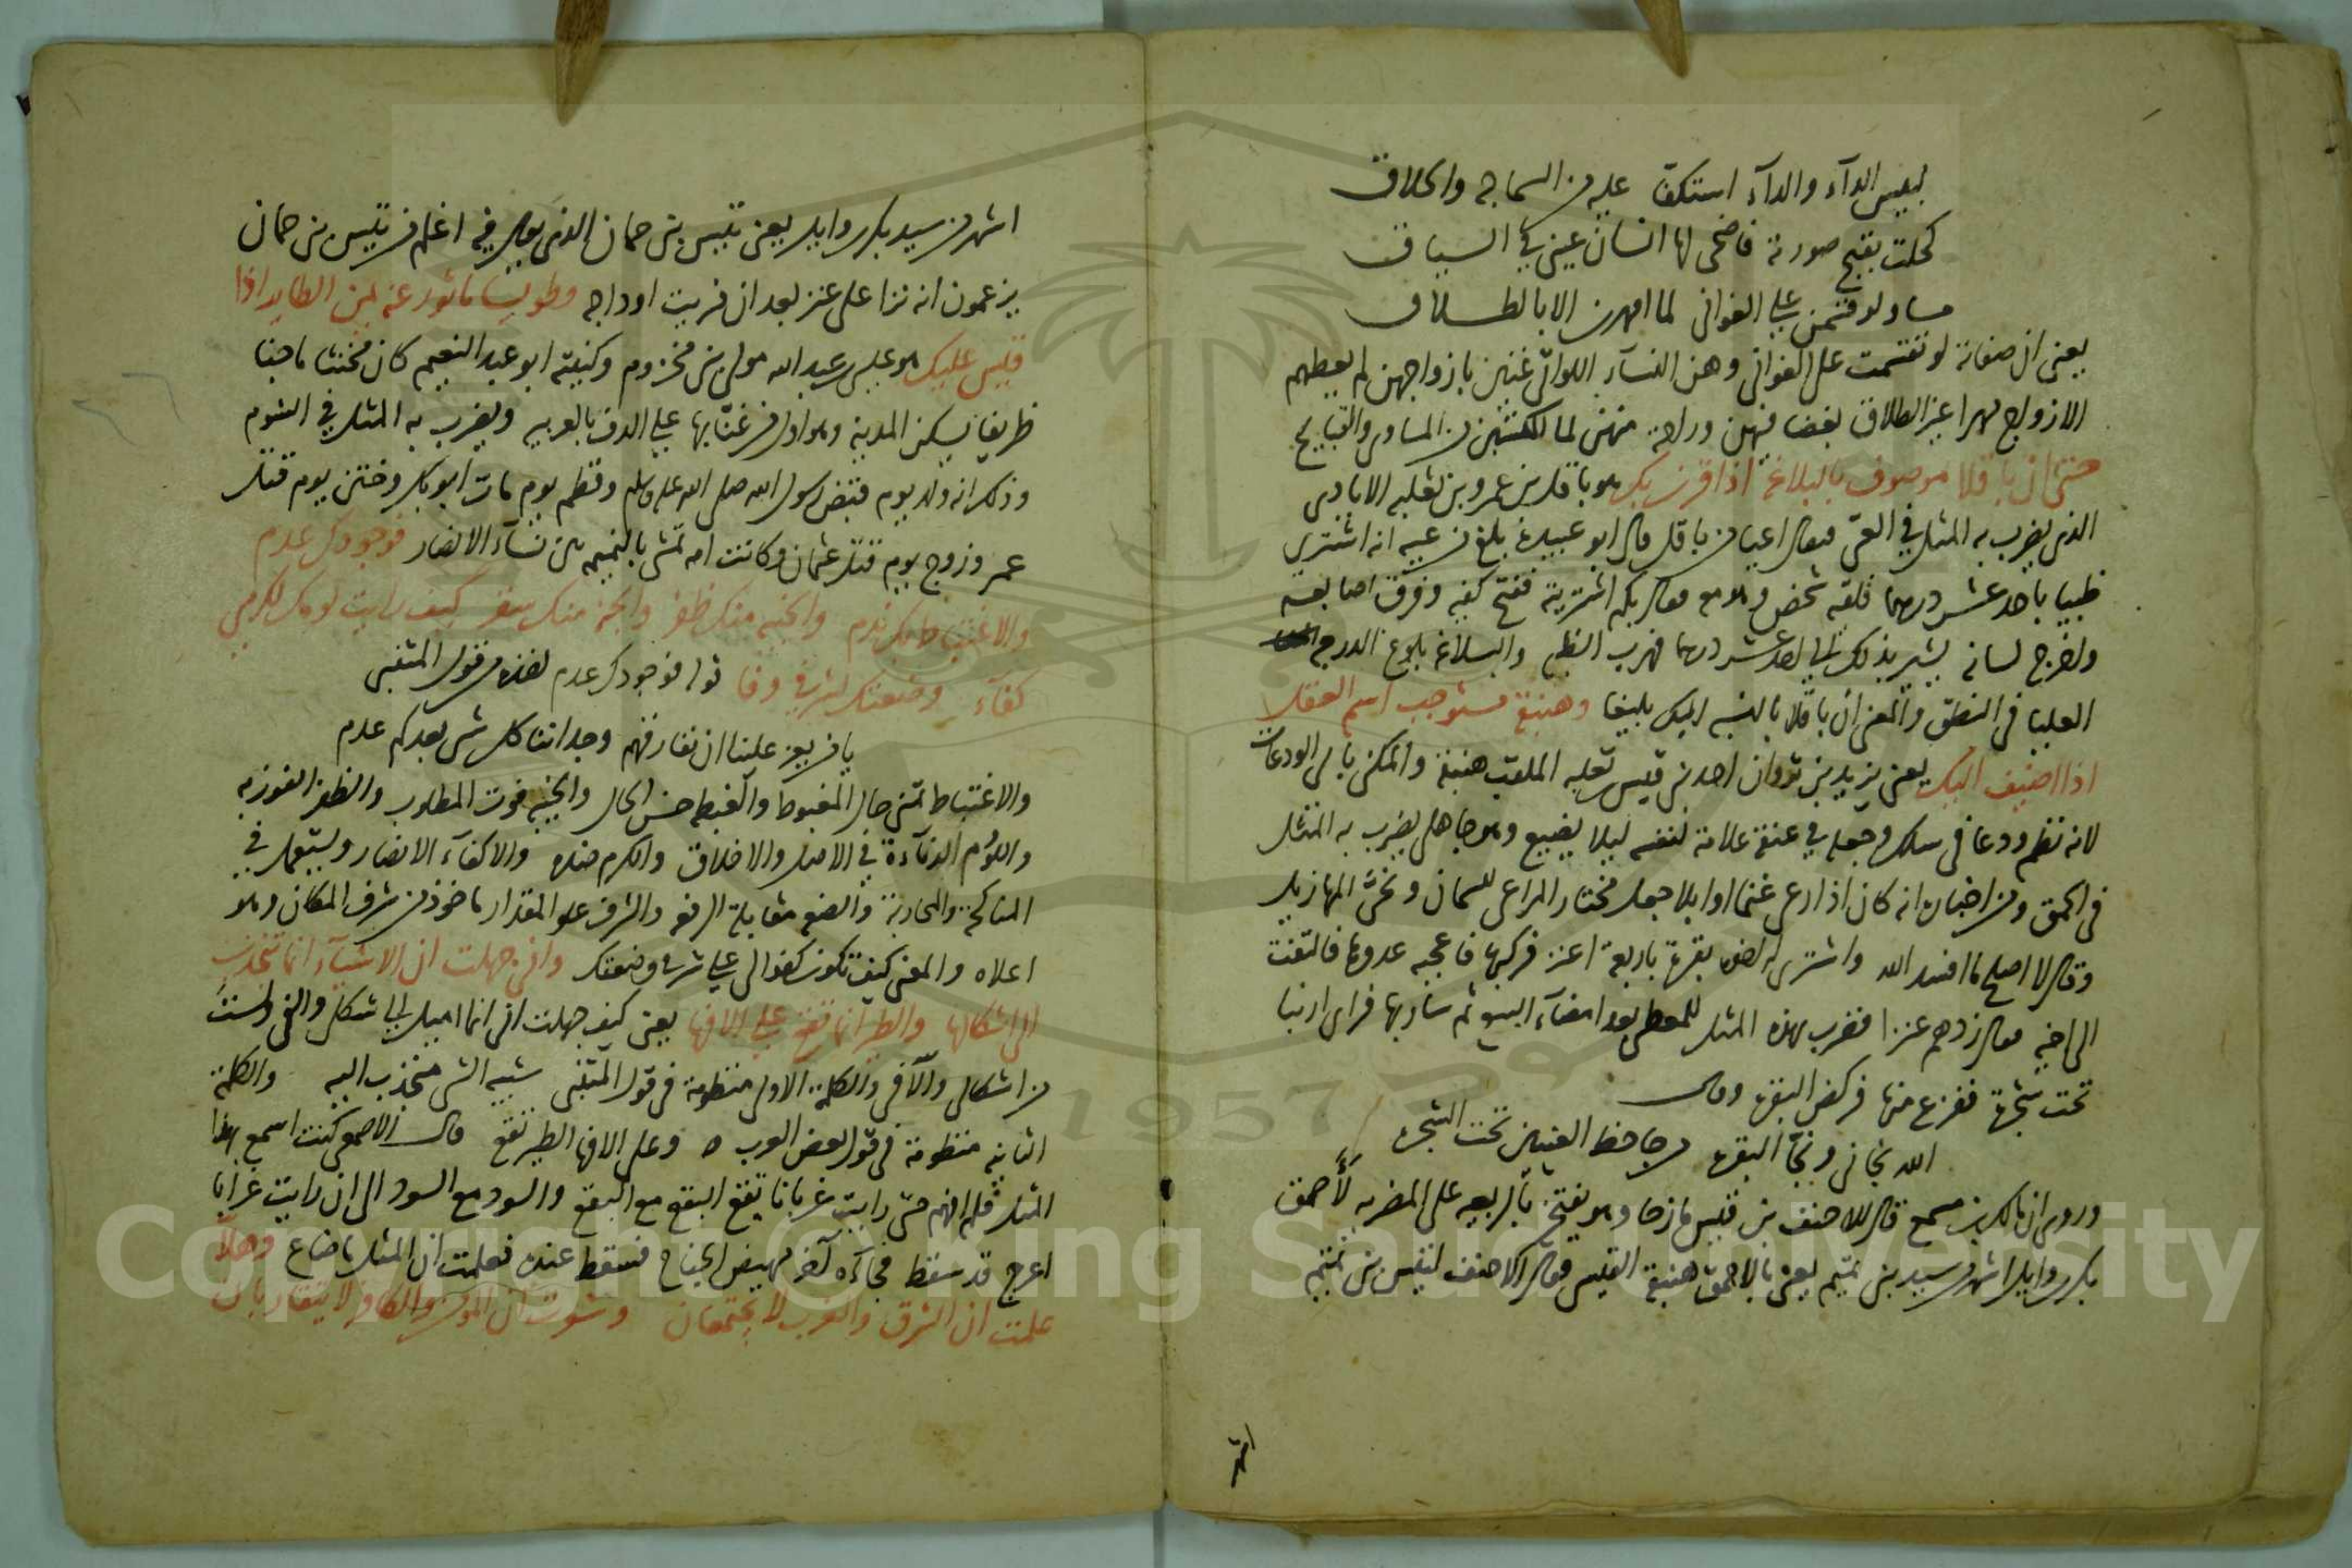 لبعيس الدآء والدآء استكفّ عليه من السماجه والحلاق
كحلت بقبح صورته فاضحى لها انسان عيني في السياق
مساو لو قسمن على الغواني لما امهرن الا بالطلاق
يعنى ان صفاته لو تقسمت على الغواني وهن النسآء اللواتى غنين بازواجهن لم يعطهم
الازواج مهرا غير الطلاق بغضا فيهن وراحة منهن لما اكتسبن من المساوى والقبايح
حتى ان باقلا موصوف بالبلاغة اذا قرن بك هو باقل بن عمرو بن ثعلبه الايادى
الذى يضرب به المثل في العى فيقال اعيا من باقل قال ابو عبيدة بلغ من عيه انه اشترى
ظبيا باحد عشر درهما فلقيه شخص وهو معه فقال بكم اشتريته ففتح كفيه وفرق اصابعه
واخرج لسانه يشير بذلك الى احد عشر درهما فهرب الظبى والبلاغة بلوغ الدرجة
العليا فى النطق والمعنى ان باقلا بالنسبه اليك بليغا وهبنقة مستوجب اسم العقل
اذا اضيف اليك يعنى يزيد بن ثروان احد بنى قيس بن ثعلبه الملقب هبنقة والمكنى بابى الودعات
لانه نظم ودعا فى سلك وجعله في عنقه علامة لنفسه ليلا يضيع وهو جاهلى يضرب به المثل
فى الحمق ومن اخباره انه كان اذا رعى غنما او ابلا جعل مختار المراعى للسمان ونحى المهازيل
وقال لا اصلح ما افسد الله واشترى اخوه بقرة باربعة اعنز فركبها فاعجبه عدوها فالتفت
الى اخيه فقال زدهم عنزا فضرب بهذه المثل للمعطى بعد امضآء البيع ثم سار بها فراى ارنبا
تحت شجرة ففزع منها فركض البقرة وقال
الله نجانى ونجّا البقرة من جاحظ العينين تحت الشجره
وروى ان مالك بن مسمع قال للاحنف بن قيس مازحا وهو يفتخر بالربيعه على المضريه لأحمق
بكر وايل اشهر من سيد بنى تميم يعنى بالاحمق هبنقة القيس فقال الاحنف لتيس بنى تميم
اشهر
اشهر من سيد بكر وايل يعنى تيس بنى حمان الذى يقال فيه اغلم من تيس بنى حمان
يزعمون انه نزا على عنز بعد ان فريت اوداجه وطويسا ماثور عنه يمن الطاير اذا
قيس عليك هو عيسى بن عبد الله مولى بنى مخزوم وكنيته ابو عبد النعيم كان مخنثا ماجنا
ظريفا يسكن المدينة وهو اول من غنّا بها على الدف بالعربيه ويضرب به المثل في الشوم
وذكر انه ولد يوم قبض رسول الله صلى الله عليه وسلم وفطم يوم مات ابو بكر وختن يوم قتل
عمر وزوج يوم قتل عثمان وكانت امه تمشى بالنميمه بين نسآء الانصار فوجودك عدم
والاغتباط بك ندم والخيبه منك ظفر والجنه منك سقر كيف رايت لومك لكرمى
كفآء وضعتك لشرفي وفا قوله فوجودك عدم اخذه من قول المتنبى
يا من يعز علينا ان نفارقهم وجداننا كل شى بعدكم عدم
والاغتباط تمنى حال المغبوط والغبطه حسن الحال والخيبه فوت المطلوب والظفر الفوز به
واللؤم الدنآءة في الاصل والاخلاق والكرم ضده والاكفآء الانضار ويستعمل في
المناكحة والمحاربة والضعه مقابلة الرفعه والشرف علو المقدار ماخوذ من شرف المكان وهو
اعلاه والمعنى كيف تكون كفوا لى على شرفي وضعتك وانى جهلت ان الاشيآء انما تنجذب
الى اشكالها والطير انما تقع على الافها يعنى كيف جهلت انى انما اميل الى شكلى والفى ولست
من اشكالى والآفى والكلمة الاولى منظومة فى قول المتنبى شبيه الشى منجذب اليه والكلمة
الثانيه منظومة فى قول بعض العرب ٥ وعلى الافها الطير تقع قال الاصمعى كنت اسمع بهذا
المثل فلم افهم حتى رايت غربانا تقع البقع مع البقع والسود مع السود الى ان رايت غرابا
اعرج قد سقط فجآءه آخر مهيض الجناح فسقط عنده فعلمت ان المثل ما ضاع وهلّا
علمت ان الشرق والغرب لا يجتمعان وشعرت ان المومن والكافر لا يتقاربان
Copyright © King Saud University
1957